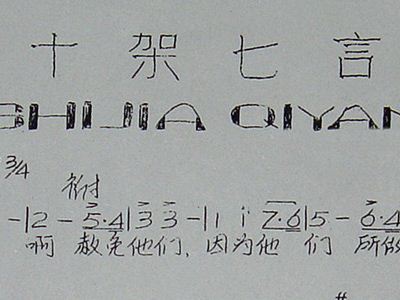 十架七言
SHIJIA QIYAN
3/4
- | 2 - 5·4 | 3 3 - | 1 i 7·6 | 5 - 6·4
啊 赦免他们、因为他们 所做
#